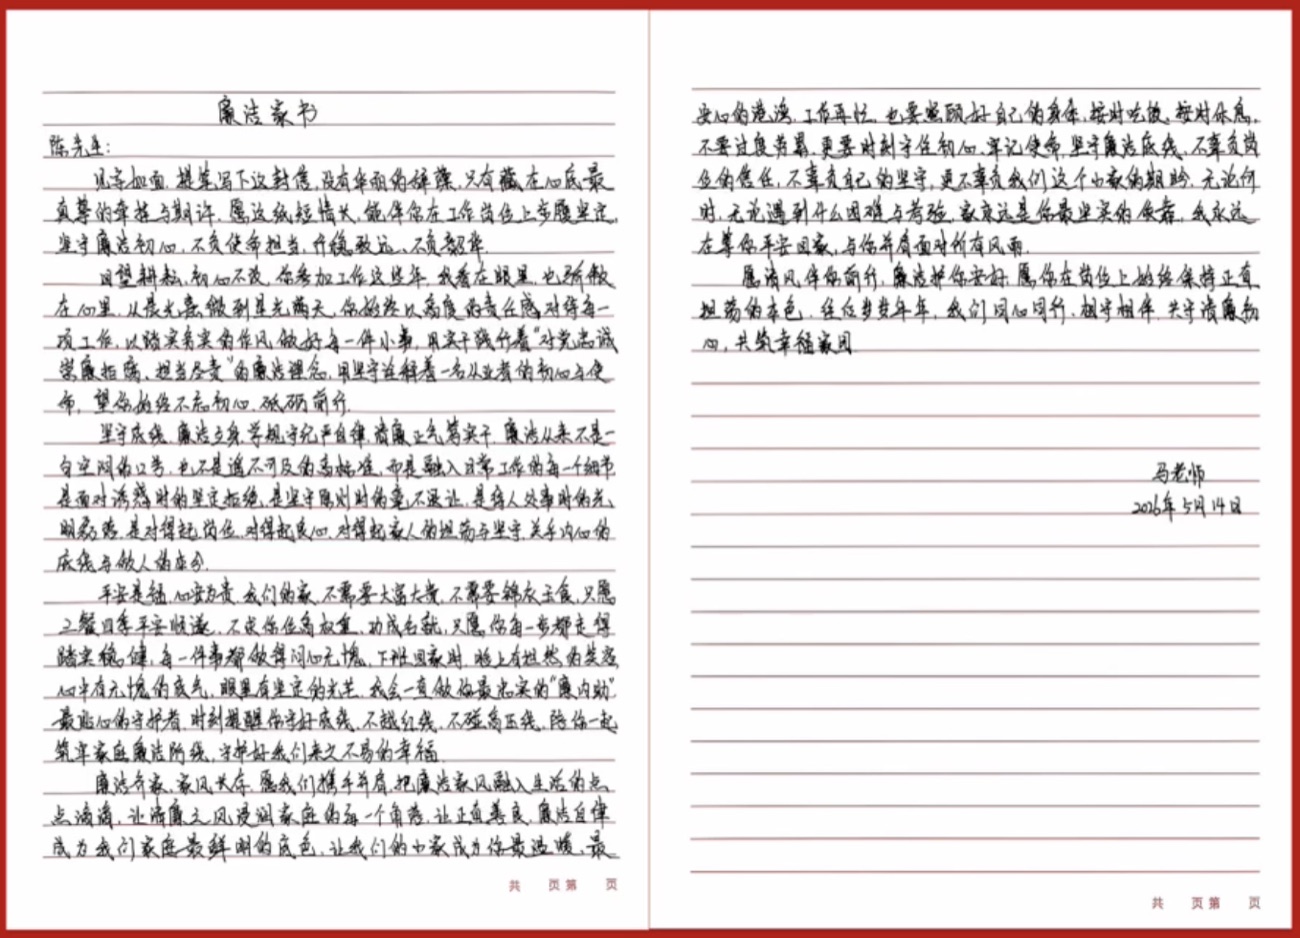 廉洁家书
陈先生：
见字如面，提笔写下这封信，没有华丽的辞藻，只有藏在心底最
真挚的牵挂与期许。愿这纸短情长，能伴你在工作岗位上步履坚定，
坚守廉洁初心，不负使命担当，行稳致远、不负韶华。
回望耕耘，初心不改，你参加工作这些年，我看在眼里，也
在心里。从晨光熹微到星光满天，你始终以高度的责任感对待每一
项工作，以踏实务实的作风做好每一件小事，用实干践行着“对党忠诚
崇廉拒腐、担当尽责”的廉洁理念，用坚守诠释着一名从业者的初心与使
命，望你始终不忘初心、砥砺前行。
坚守底线，廉洁立身，学规守纪严自律，清廉正气笃实干。廉洁从来不是一
句空洞的口号，也不是遥不可及的高标准，而是融入日常工作的每一个细节
是面对诱惑时的坚定拒绝，是坚守原则时的毫不退让，是待人处事时的光
明磊落，是对得起岗位、对得起良心、对得起家人的坦荡与坚守，关乎内心的
底线与做人的本分。
平安是福，心安为贵。我们的家，不需要大富大贵，不需要锦衣玉食，只愿
三餐四季平安顺遂，不求你位高权重、功成名就，只愿你每一步都走得
踏实稳健，每一件事都做得问心无愧，下班回家时，脸上有坦然的笑容，
心中有无愧的底气，眼里有坚定的光芒。我会一直做你最忠实的“廉内助”
最贴心的守护者，时刻提醒你守好底线，不越红线，不碰高压线，陪你一起
筑牢家庭廉洁防线，守护好我们来之不易的幸福。
廉洁齐家，家风长存。愿我们携手并肩，把廉洁家风融入生活的点
点滴滴，让清廉之风浸润家庭的每一个角落，让正直善良、廉洁自律
成为我们家庭最鲜明的底色，让我们的小家成为你最温暖、最
安心的港湾。工作再忙，也要照顾好自己的身体，按时吃饭，按时休息，
不要过度劳累，更要时刻守住初心，牢记使命，坚守廉洁底线，不辜负岗
位的信任，不辜负自己的坚守，更不辜负我们这个小家的期盼。无论何
时，无论遇到什么困难与考验，家永远是你最坚实的依靠，我永远
在等你平安回家，与你并肩面对所有风雨。
愿清风伴你前行，廉洁护你安好，愿你在岗位上始终保持正直
坦荡的本色，往后岁岁年年，我们同心同行，相守相伴，共守清廉初
心，共筑幸福家园。
马老师
2026年5月14日
共 页 第 页
共 页 第 页